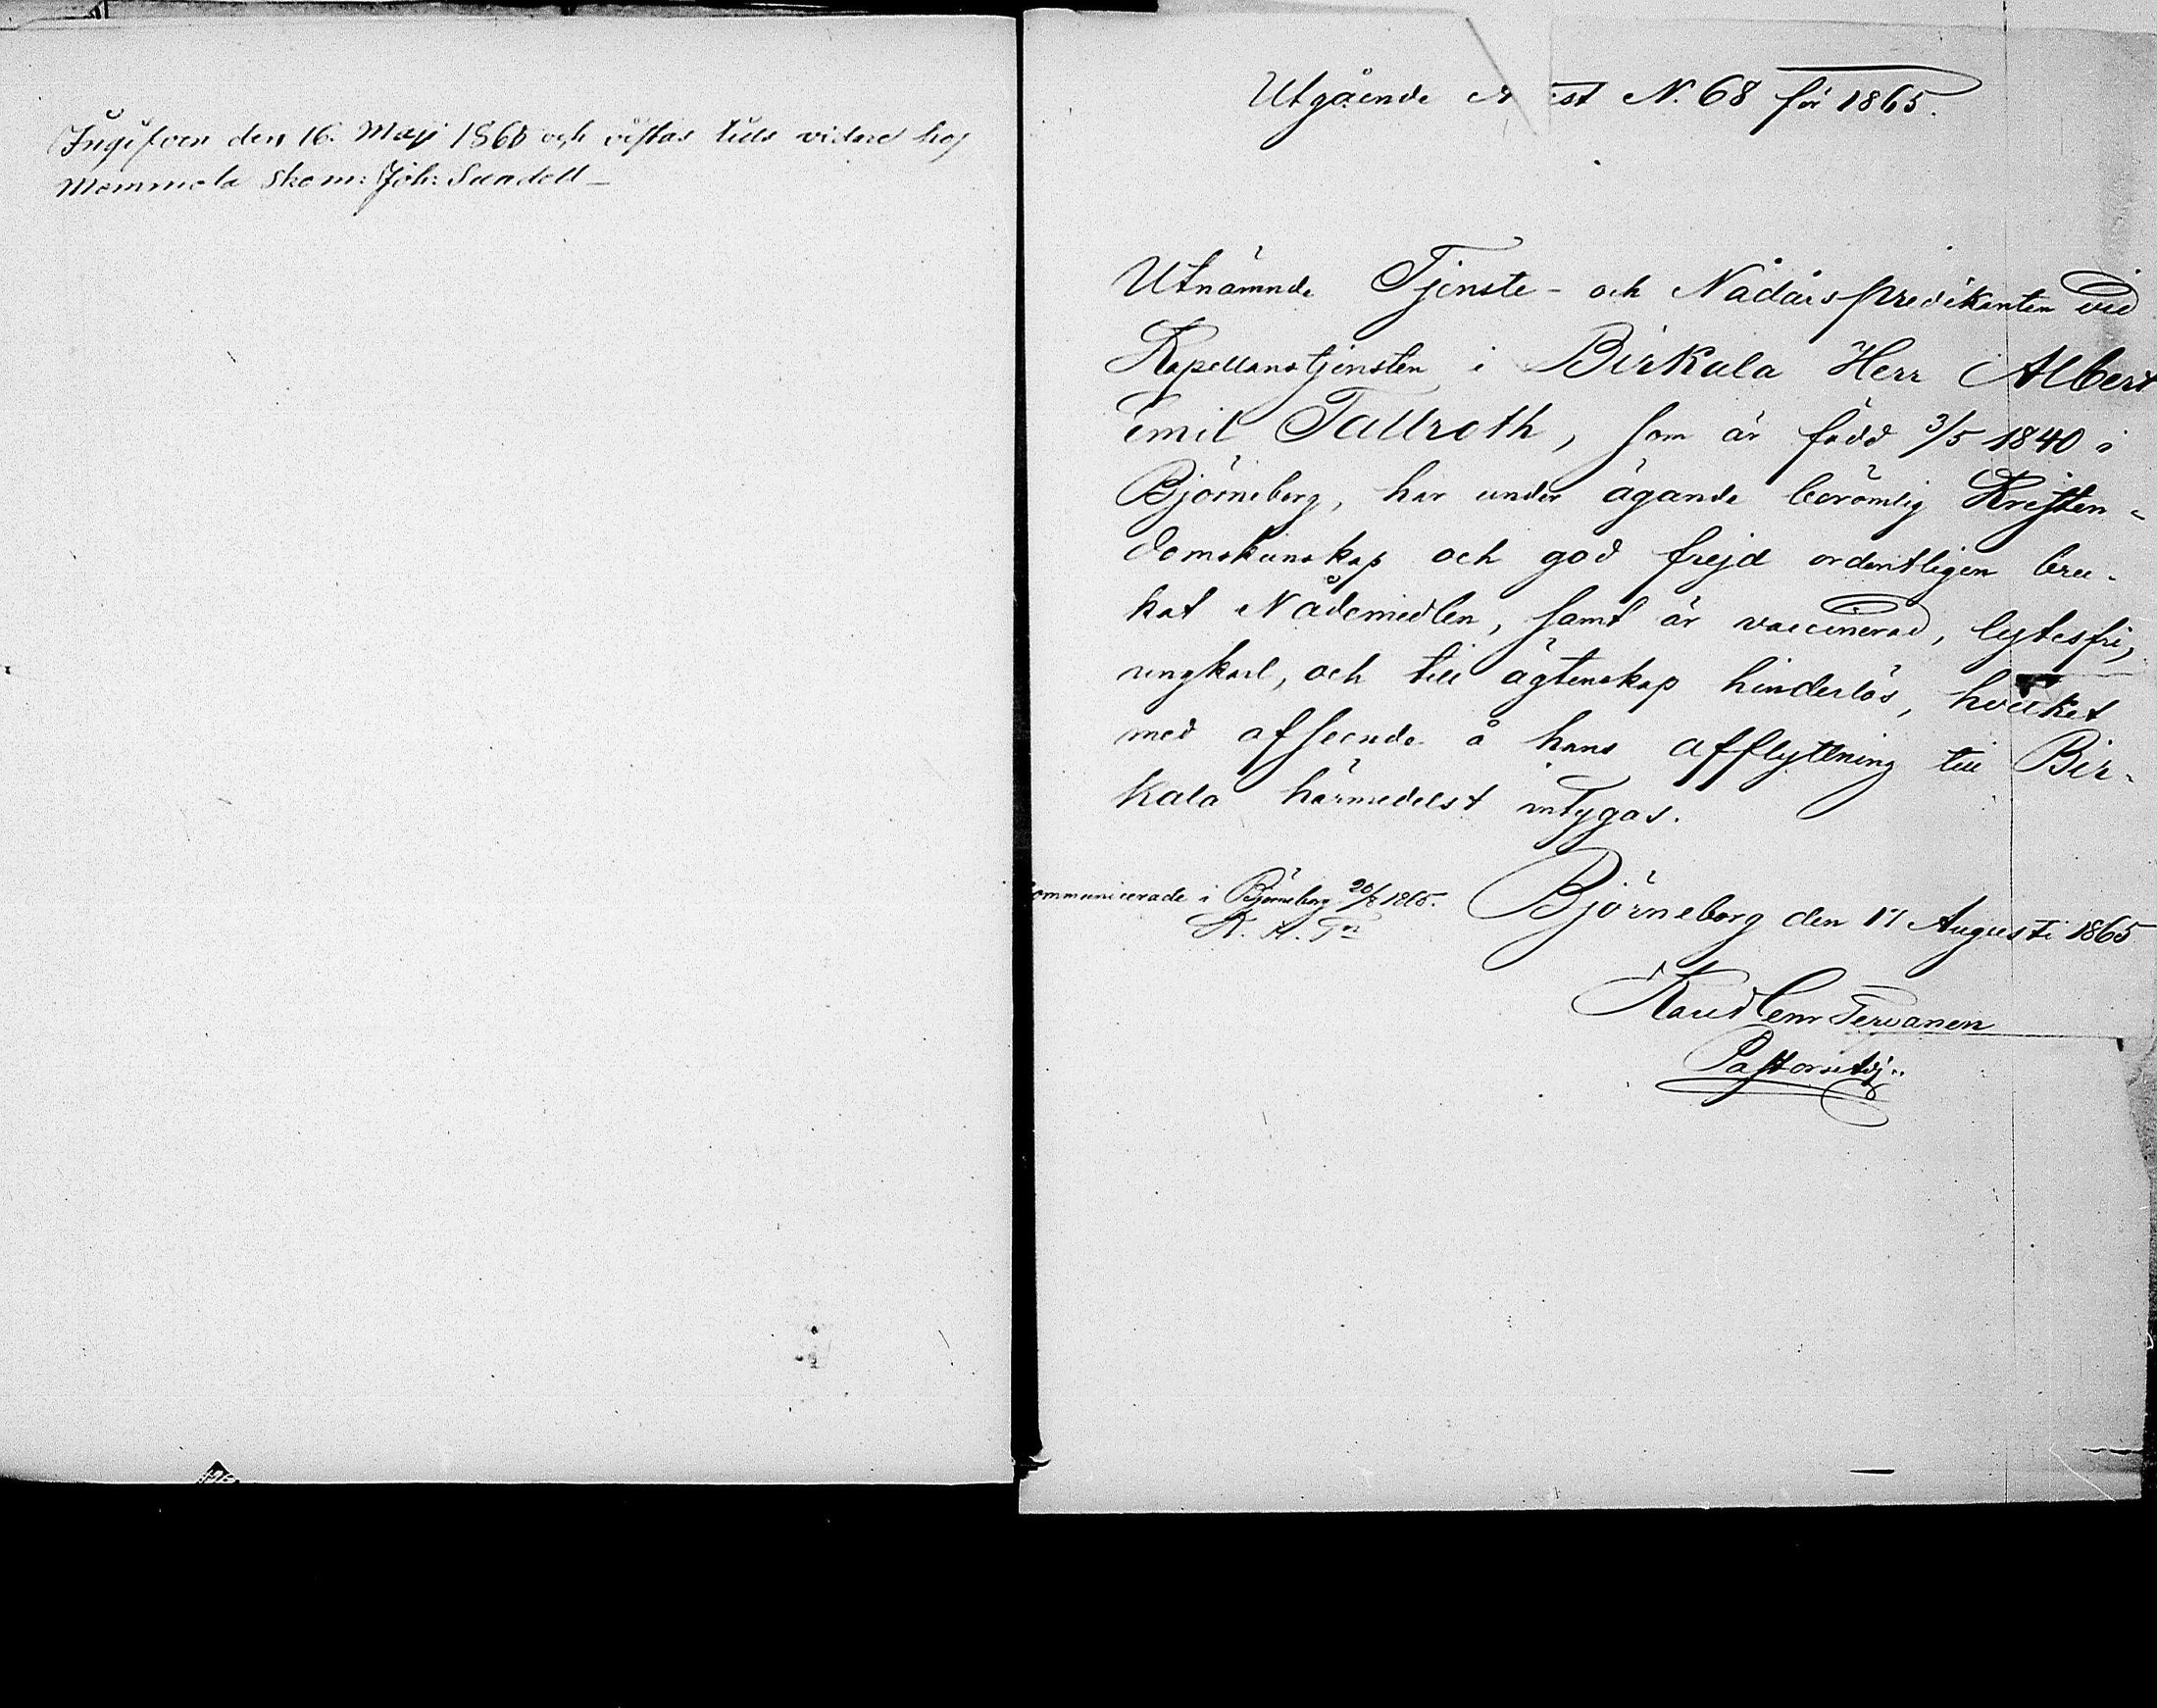 Ingifven den 16. Maji 1865 och vistas tils vidare hos
Mommola Skom: Joh:
Utgående N. 68 för 1865.
Utnämnde Tjenste- och Nådårspredikanten vid
Kapellanstjensten i Birkala Herr Albert
Emil Tallroth, som är född 3/5 1840 i
Björneborg, har under ägande berömlig Kristen-
domskunskap och god frejd ordentligen bru-
kat Nådemedlen, samt är vaccinerad, lytesfri,
ungkarl, och till ägtenskap hinderlös, hvilket
med afseende å hans afflyttning till Bir-
kala härmedelst intygas.
ommunicerade i Björneborg 20/8 1865.
K. H. Tn
Björneborg den 17 Augusti 1865
Tervanen
Pastorsadj: